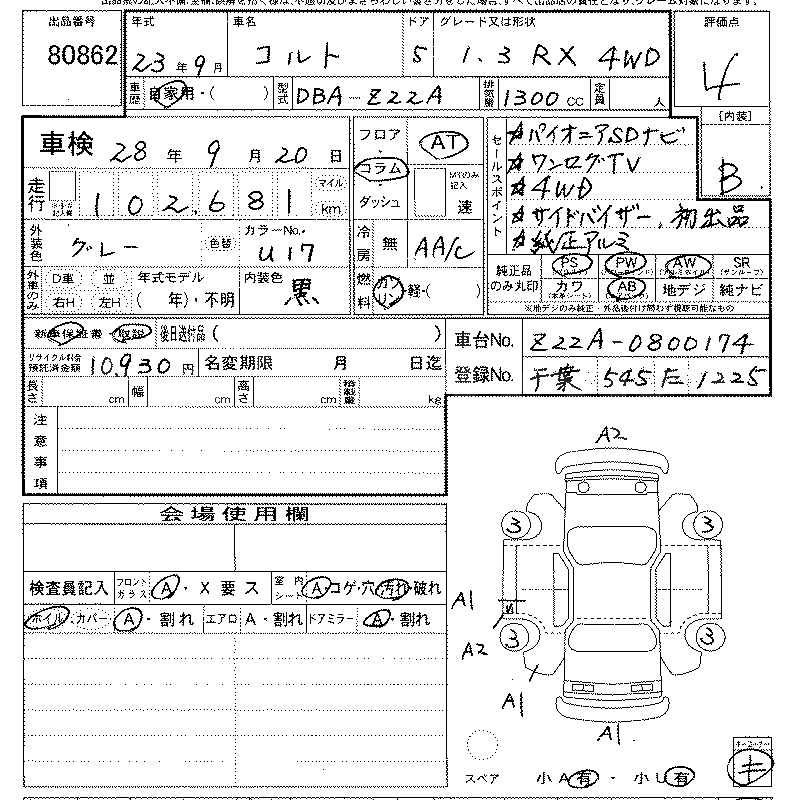 出品番号 年式 車名 ドア グレード又は形状 評価点
80862 23年 9月 コルト 5 1.3 RX 4WD 4
車歴 自家用・( ) 型式 DBA-Z22A 排気量 1300 cc 定員 人
[内装]
B
車検 28年 9月 20日
フロア コラム ダッシュ AT MTのみ記入 速
セールスポイント
☆パイオニアSDナビ
☆ワンセグTV
☆4WD
☆サイドバイザー、初出品
☆純正アルミ
走行 102,681 マイル km
外装色 グレー 色替 カラーNo. U17 冷房 無 AA/C
純正品のみ丸印 PS PW AW SR (サンルーフ)
カワ AB 地デジ 純ナビ
※地デジのみ純正・外品後付け問わず視聴可能なもの
外車のみ D車 並 右H 左H 年式モデル ( 年)・不明 内装色 黒 燃料 ガソリン 軽・( )
新車保証書・取説 後日送付品 ( )
車台No. Z22A-0800174
リサイクル料金預託済金額 10,930円 名変期限 月 日迄
登録No. 千葉 545 た 1225
長さ cm 幅 cm 高さ cm 積載量 kg
注意事項
A2
会場使用欄
3 3
検査員記入 フロントガラス A・X要ス 室内シート A・コゲ・穴 汚れ・破れ
A1
S
ホイル、カバー A・割れ エアロ A・割れ ドアミラー A・割れ
3 3
A2
A1
A1
スペア 小A有・小U有
キ